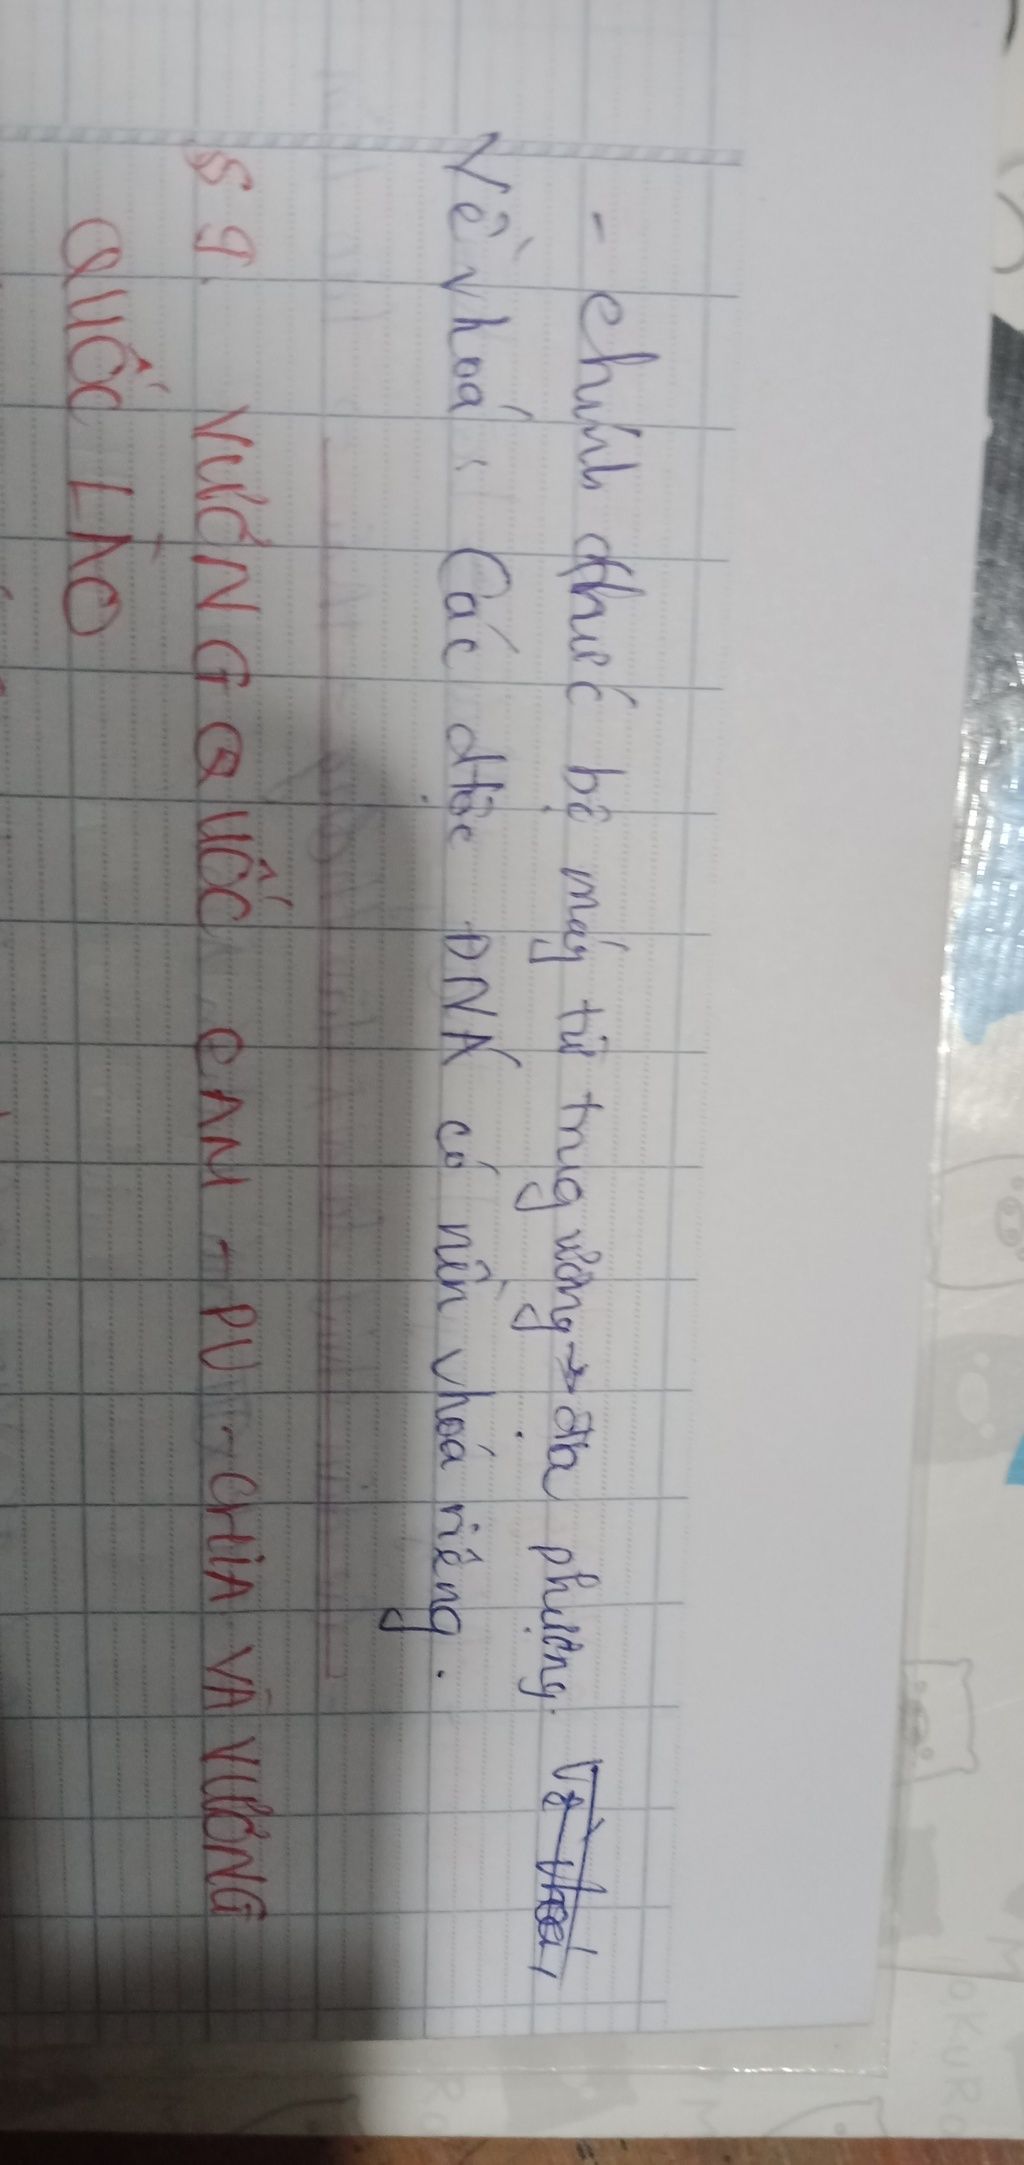 - Chính thức bộ máy từ trug ương → địa phương. Về vhoá,
Về vhoá: Các dtộc ĐNÁ có nền vhoá riêng.
§ 9. VƯƠNG QUỐC CAM - PU - CHIA VÀ VƯƠNG
QUỐC LÀO